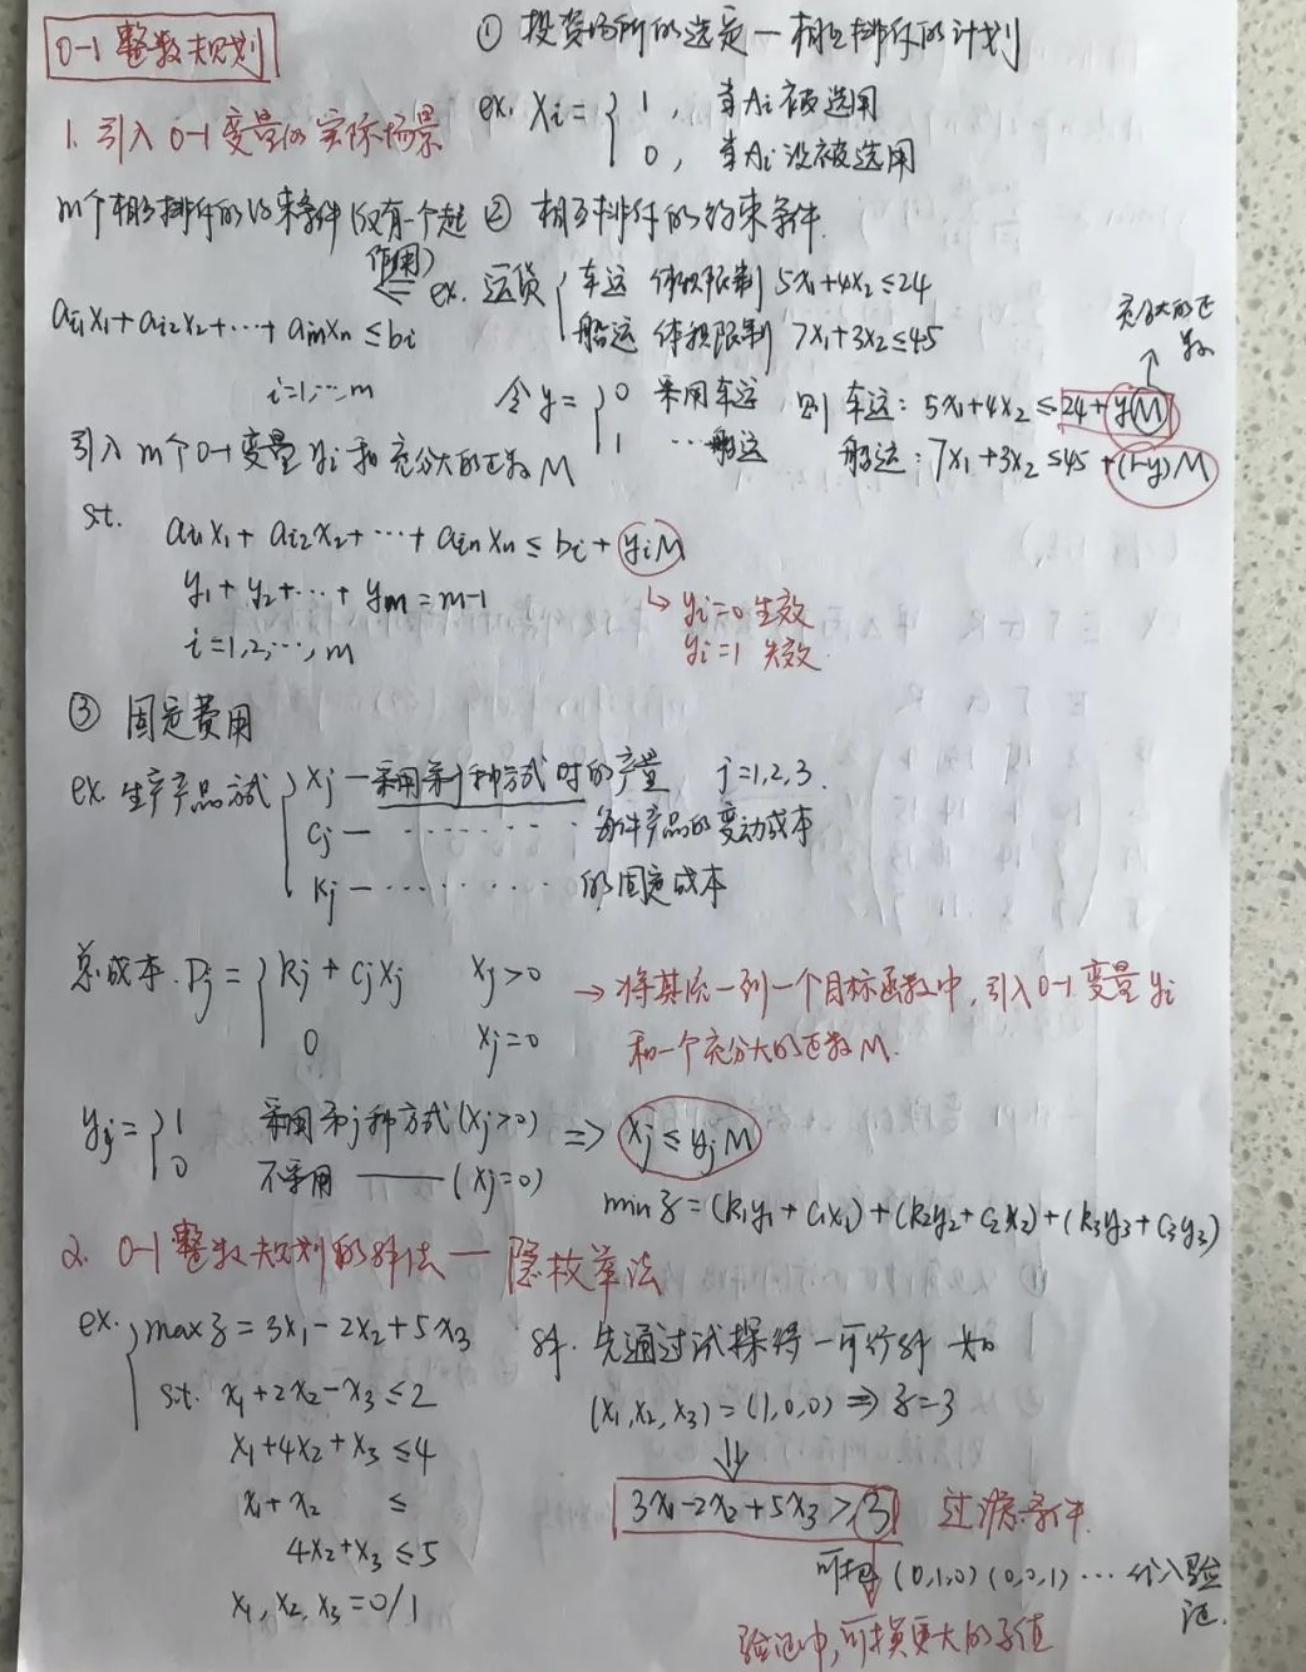 0-1 整数规划
1. 引入 0-1 变量的实际场景
① 投资场所的选定 — 相互排斥的计划
ex. Xi = { 1, 当Ai被选用
0, 当Ai没被选用
② 相互排斥的约束条件.
ex. 运货 { 车运 体积限制 5x₁+4x₂≤24
船运 体积限制 7x₁+3x₂≤45
令 y = { 0 采用车运 则 车运: 5x₁+4x₂ ≤ 24+yM
1 … 船运 船运: 7x₁+3x₂ ≤45 +(1-y)M
充分大的正数
m个相互排斥的约束条件(仅有一个起作用)
⇐
ai₁x₁+ai₂x₂+⋯+ainxn ≤ bi
i=1,⋯,m
引入 m个0-1变量 yi 和 充分大的正数 M
s.t. ai₁x₁+ai₂x₂+⋯+ainxn ≤ bi + yiM
y₁+y₂+⋯+ym = m-1
i=1,2,⋯,m
↳ yi=0 生效
yi=1 失效
③ 固定费用
ex. 生产产品方式 { xj — 采用第j种方式时的产量 j=1,2,3.
cj — ⋯⋯⋯ 每件产品的变动成本
kj — ⋯⋯⋯ 的固定成本
总成本. Pj = { kj + cjxj xj>0
0 xj=0
→ 将其统一到一个目标函数中, 引入0-1变量 yi
和一个充分大的正数 M.
yj = { 1 采用第j种方式(xj>0)
0 不采用 —— (xj=0)
⇒ xj ≤ yjM
min z = (k₁y₁+c₁x₁)+(k₂y₂+c₂x₂)+(k₃y₃+c₃y₃)
2. 0-1整数规划的解法 — 隐枚举法
ex. { max z = 3x₁-2x₂+5x₃
s.t. x₁+2x₂-x₃ ≤2
x₁+4x₂+x₃ ≤4
x₁+x₂ ≤
4x₂+x₃ ≤5
x₁, x₂, x₃ =0/1
解. 先通过试探得一可行解 如
(x₁,x₂,x₃)=(1,0,0) ⇒ z=3
⇓
3x₁-2x₂+5x₃ ≥3 过滤条件.
可把 (0,1,0) (0,0,1) ⋯ 代入验证.
验证中,可换更大的z值